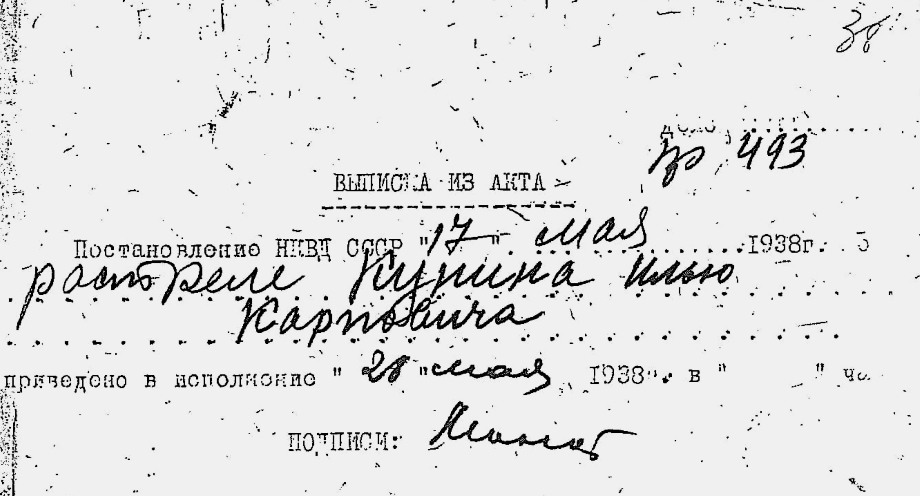 38
дело
пр 493
ВЫПИСКА ИЗ АКТА
Постановление НКВД СССР "17" мая 1938г. о
расстреле Кунина Илью
Карповича
приведено в исполнение " 28 " мая 1938г. в " " ча
ПОДПИСИ: